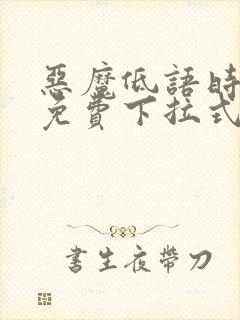 惡魔低語時
免費下拉式
書生夜帶刀